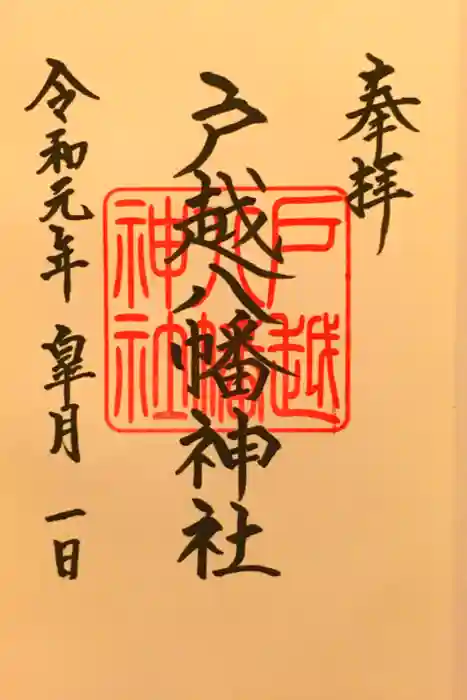 奉拝
戸越八幡神社
戸越
八幡
神社
令和元年 皐月 一日